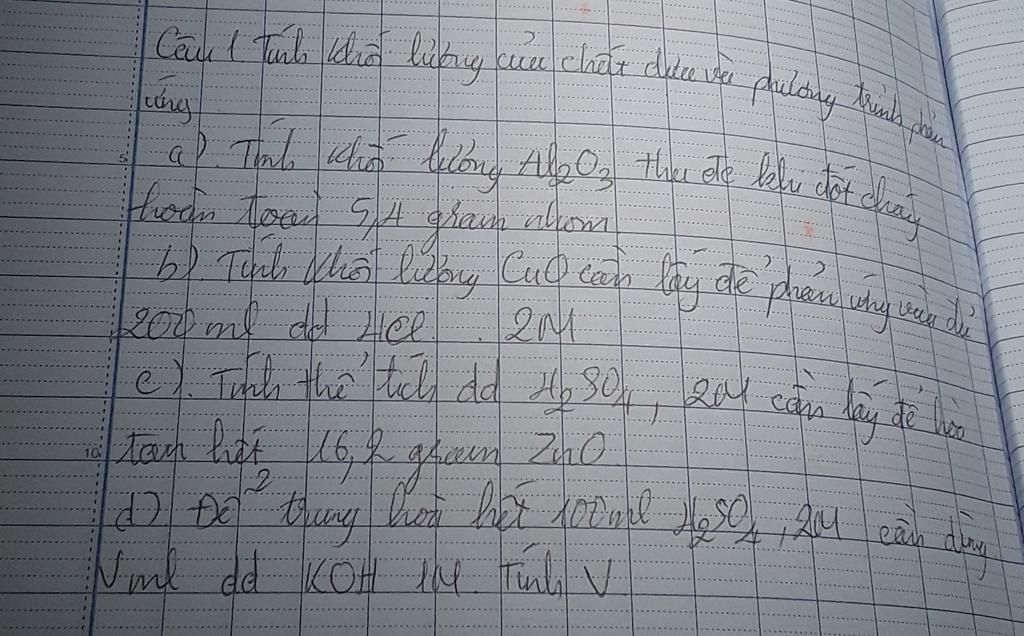 Câu 1 Tính khối lượng của chất dựa vào phương trình phản
ứng
a). Tính khối lượng Al2O3 thu để khi đốt cháy
hoàn toàn 5,4 gham nhom
b). Tính khối lượng CuO cần lấy để phản ứng vừa đủ
200 ml dd HCl. 2M
c). Tính thể tích dd H2SO4, 2M cần lấy để hòa
tam hết 16,2 gham ZnO
d) Để trung hoà hết 100 ml H2SO4, 2M cần dùng
V ml dd KOH 1M. Tính V